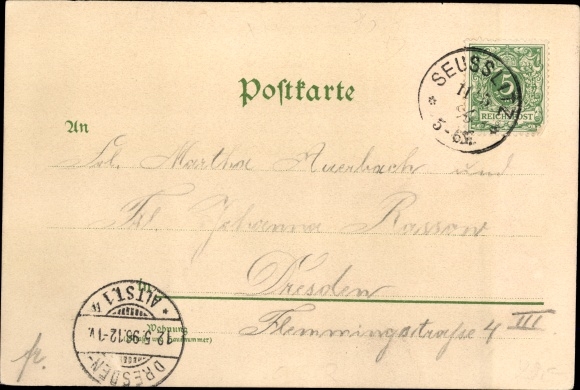 SEUSSLITZ
11 5
5-6N
5
REICHSPOST
Postkarte
An
Frl. Martha Auerbach und
Frl. Johanna Rassow
in
Dresden
Wohnung
(Straße und Hausnummer)
Flemmingstraße 4 III
fr.
DRESDEN-ALTST. 14
12.5.98.12-1V.